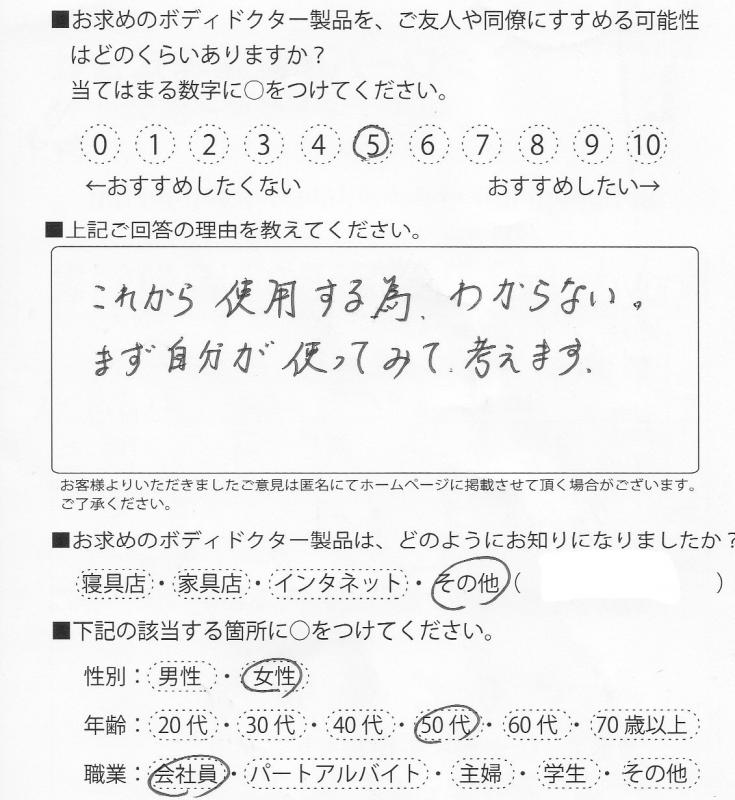 ■お求めのボディドクター製品を、ご友人や同僚にすすめる可能性
はどのくらいありますか？
当てはまる数字に○をつけてください。
0 1 2 3 4 5 6 7 8 9 10
←おすすめしたくない おすすめしたい→
■上記ご回答の理由を教えてください。
これから使用する為、わからない。
まず自分が使ってみて、考えます。
お客様よりいただきましたご意見は匿名にてホームページに掲載させて頂く場合がございます。
ご了承ください。
■お求めのボディドクター製品は、どのようにお知りになりましたか？
寝具店・家具店・インタネット・その他（ ）
■下記の該当する箇所に○をつけてください。
性別：男性・女性
年齢：20代・30代・40代・50代・60代・70歳以上
職業：会社員・パートアルバイト・主婦・学生・その他